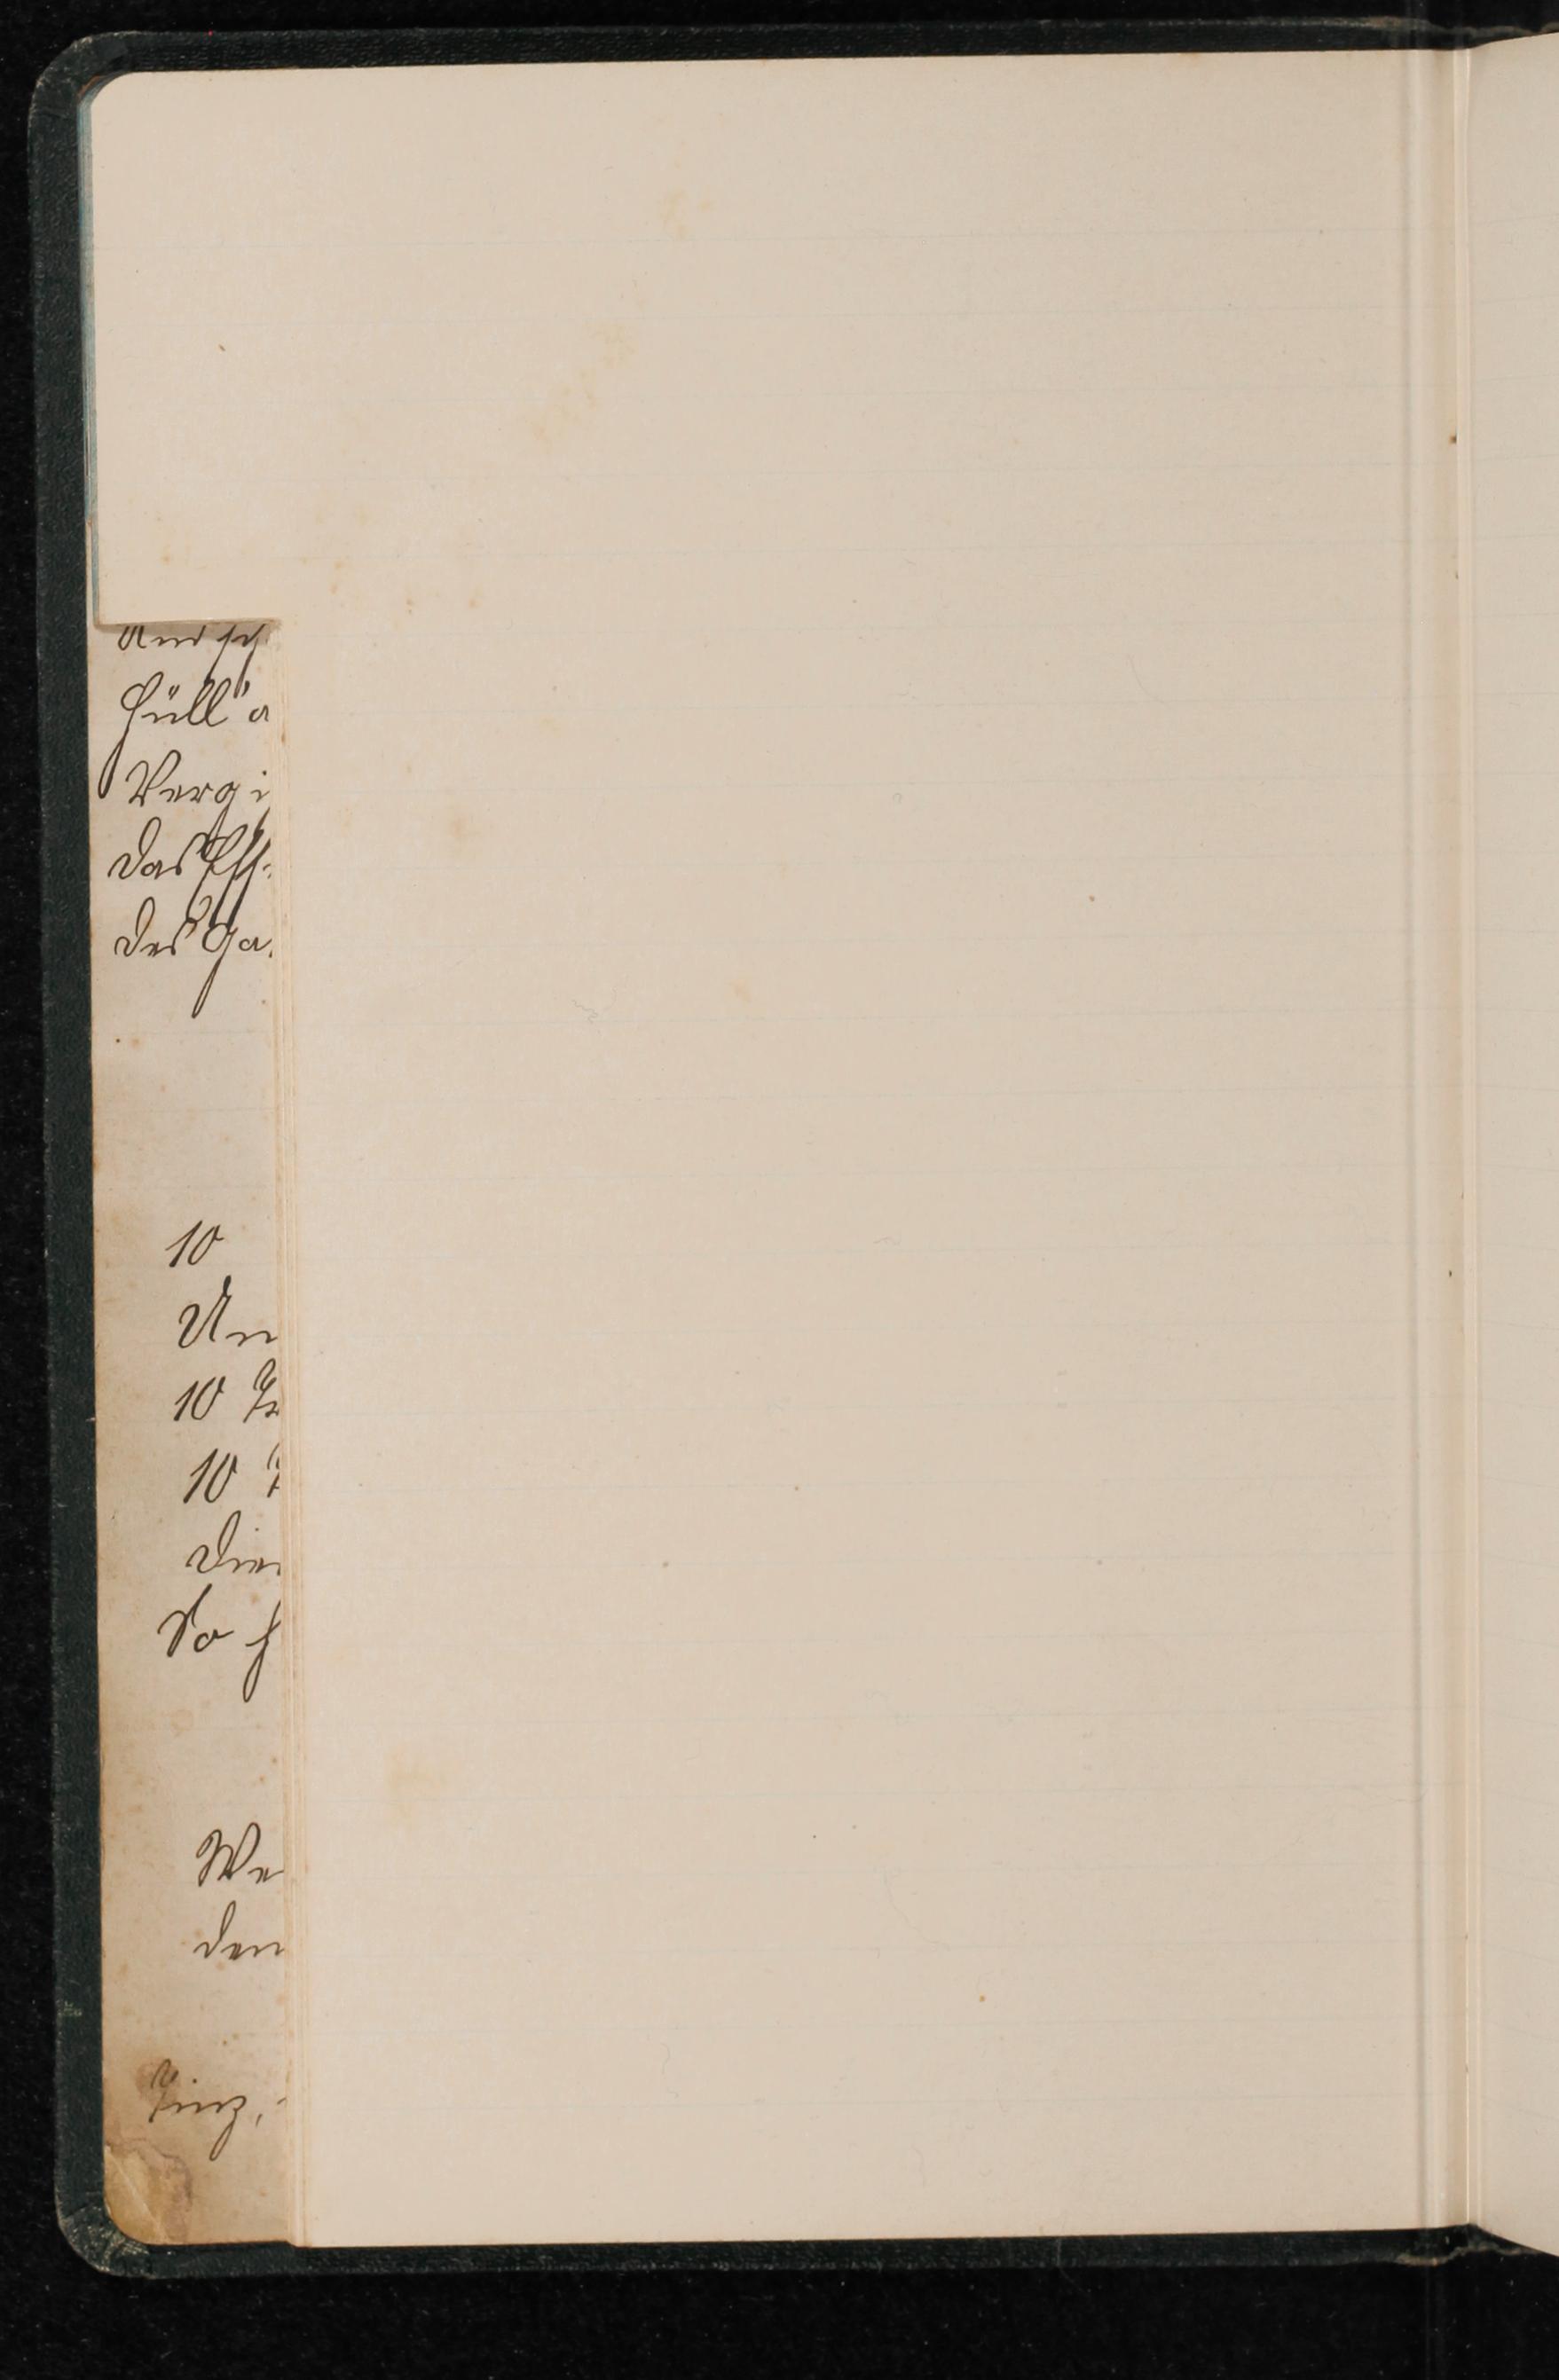 Und sch
Hüll' a
Vergi
das
des Ga
10
Un
10
10
Die
So h
We
den
Linz,